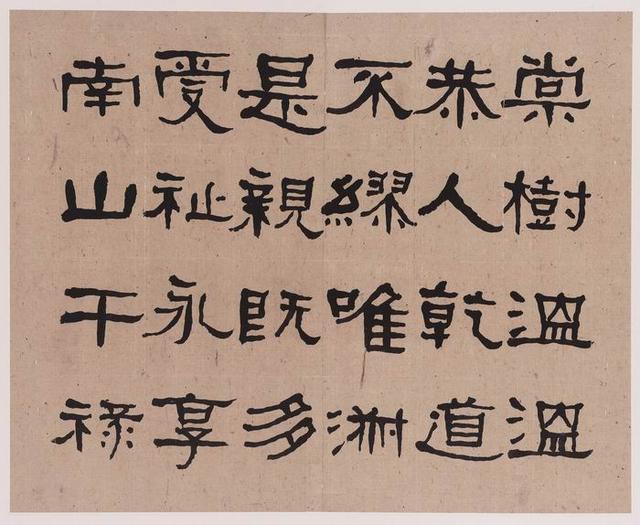 棠樹溫溫
恭人乾道
不繆唯淵
是親既多
受祉永享
南山干祿